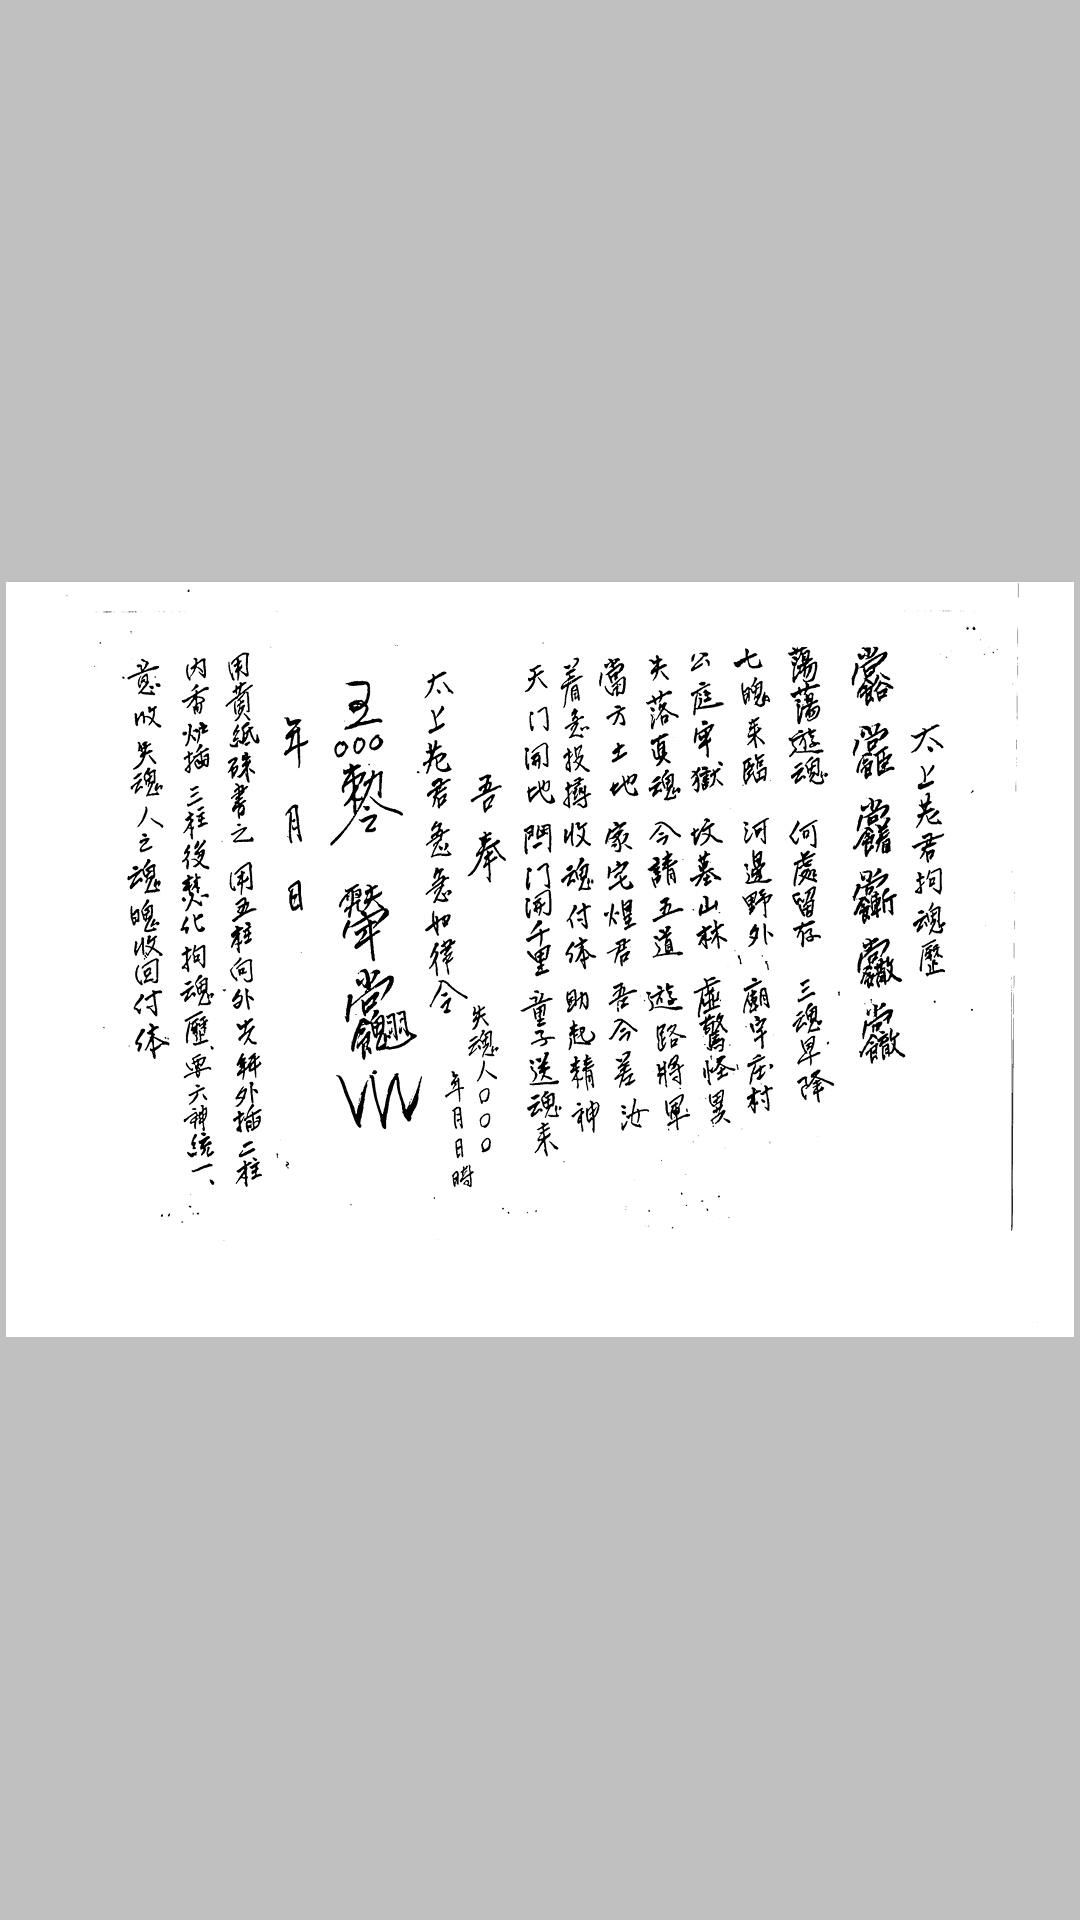 太上老君拘魂歷
蕩蕩遊魂 何處留存 三魂早降
七魄来臨 河邊野外 廟宇庄村
公庭牢獄 坟墓山林 虚驚怪異
失落真魂 今請五道 遊路將軍
當方土地 家宅煌君 吾今差汝
着急投㝷收魂付体助起精神
天门開地門门開千里童子送魂来
吾奉
失魂人〇〇〇
年月日時
太上老君急急如律令
〇〇〇勅令
年 月 日
用黄紙硃書之 用五柱向外先 外插二柱
内香炉插三柱後焚化拘魂歷、要六神統一、
意收失魂人之魂魄收回付体